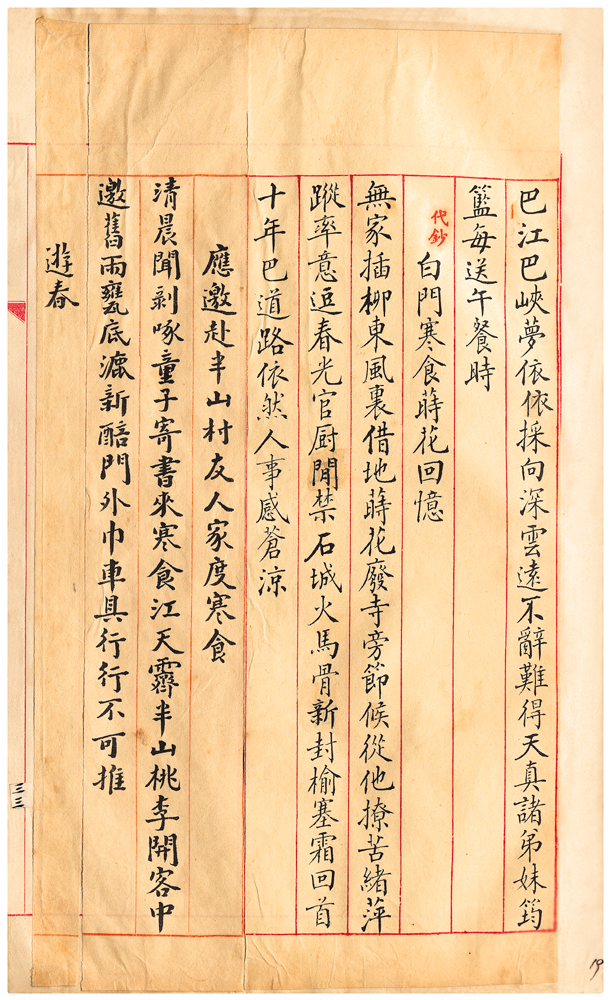 巴江巴峽夢依依採向深雲遠不辭難得天真諸弟妹筠
籃每送午餐時
代鈔
白門寒食蒔花回憶
無家插柳東風裏借地蒔花廢寺旁節候從他撩苦緒萍
蹤率意逗春光官厨閒禁石城火馬骨新封榆塞霜回首
十年巴道路依然人事感蒼涼
應邀赴半山村友人家度寒食
清晨聞剝啄童子寄書來寒食江天霽半山桃李開客中
邀舊雨甕底漉新醅門外巾車具行行不可推
遊春
三三
19